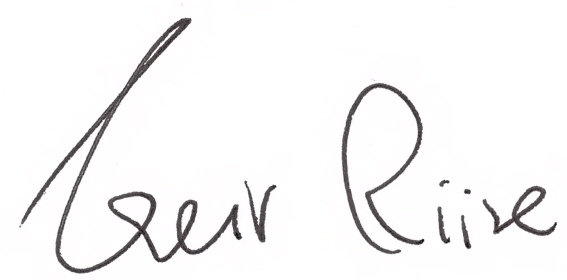 Geir Riise